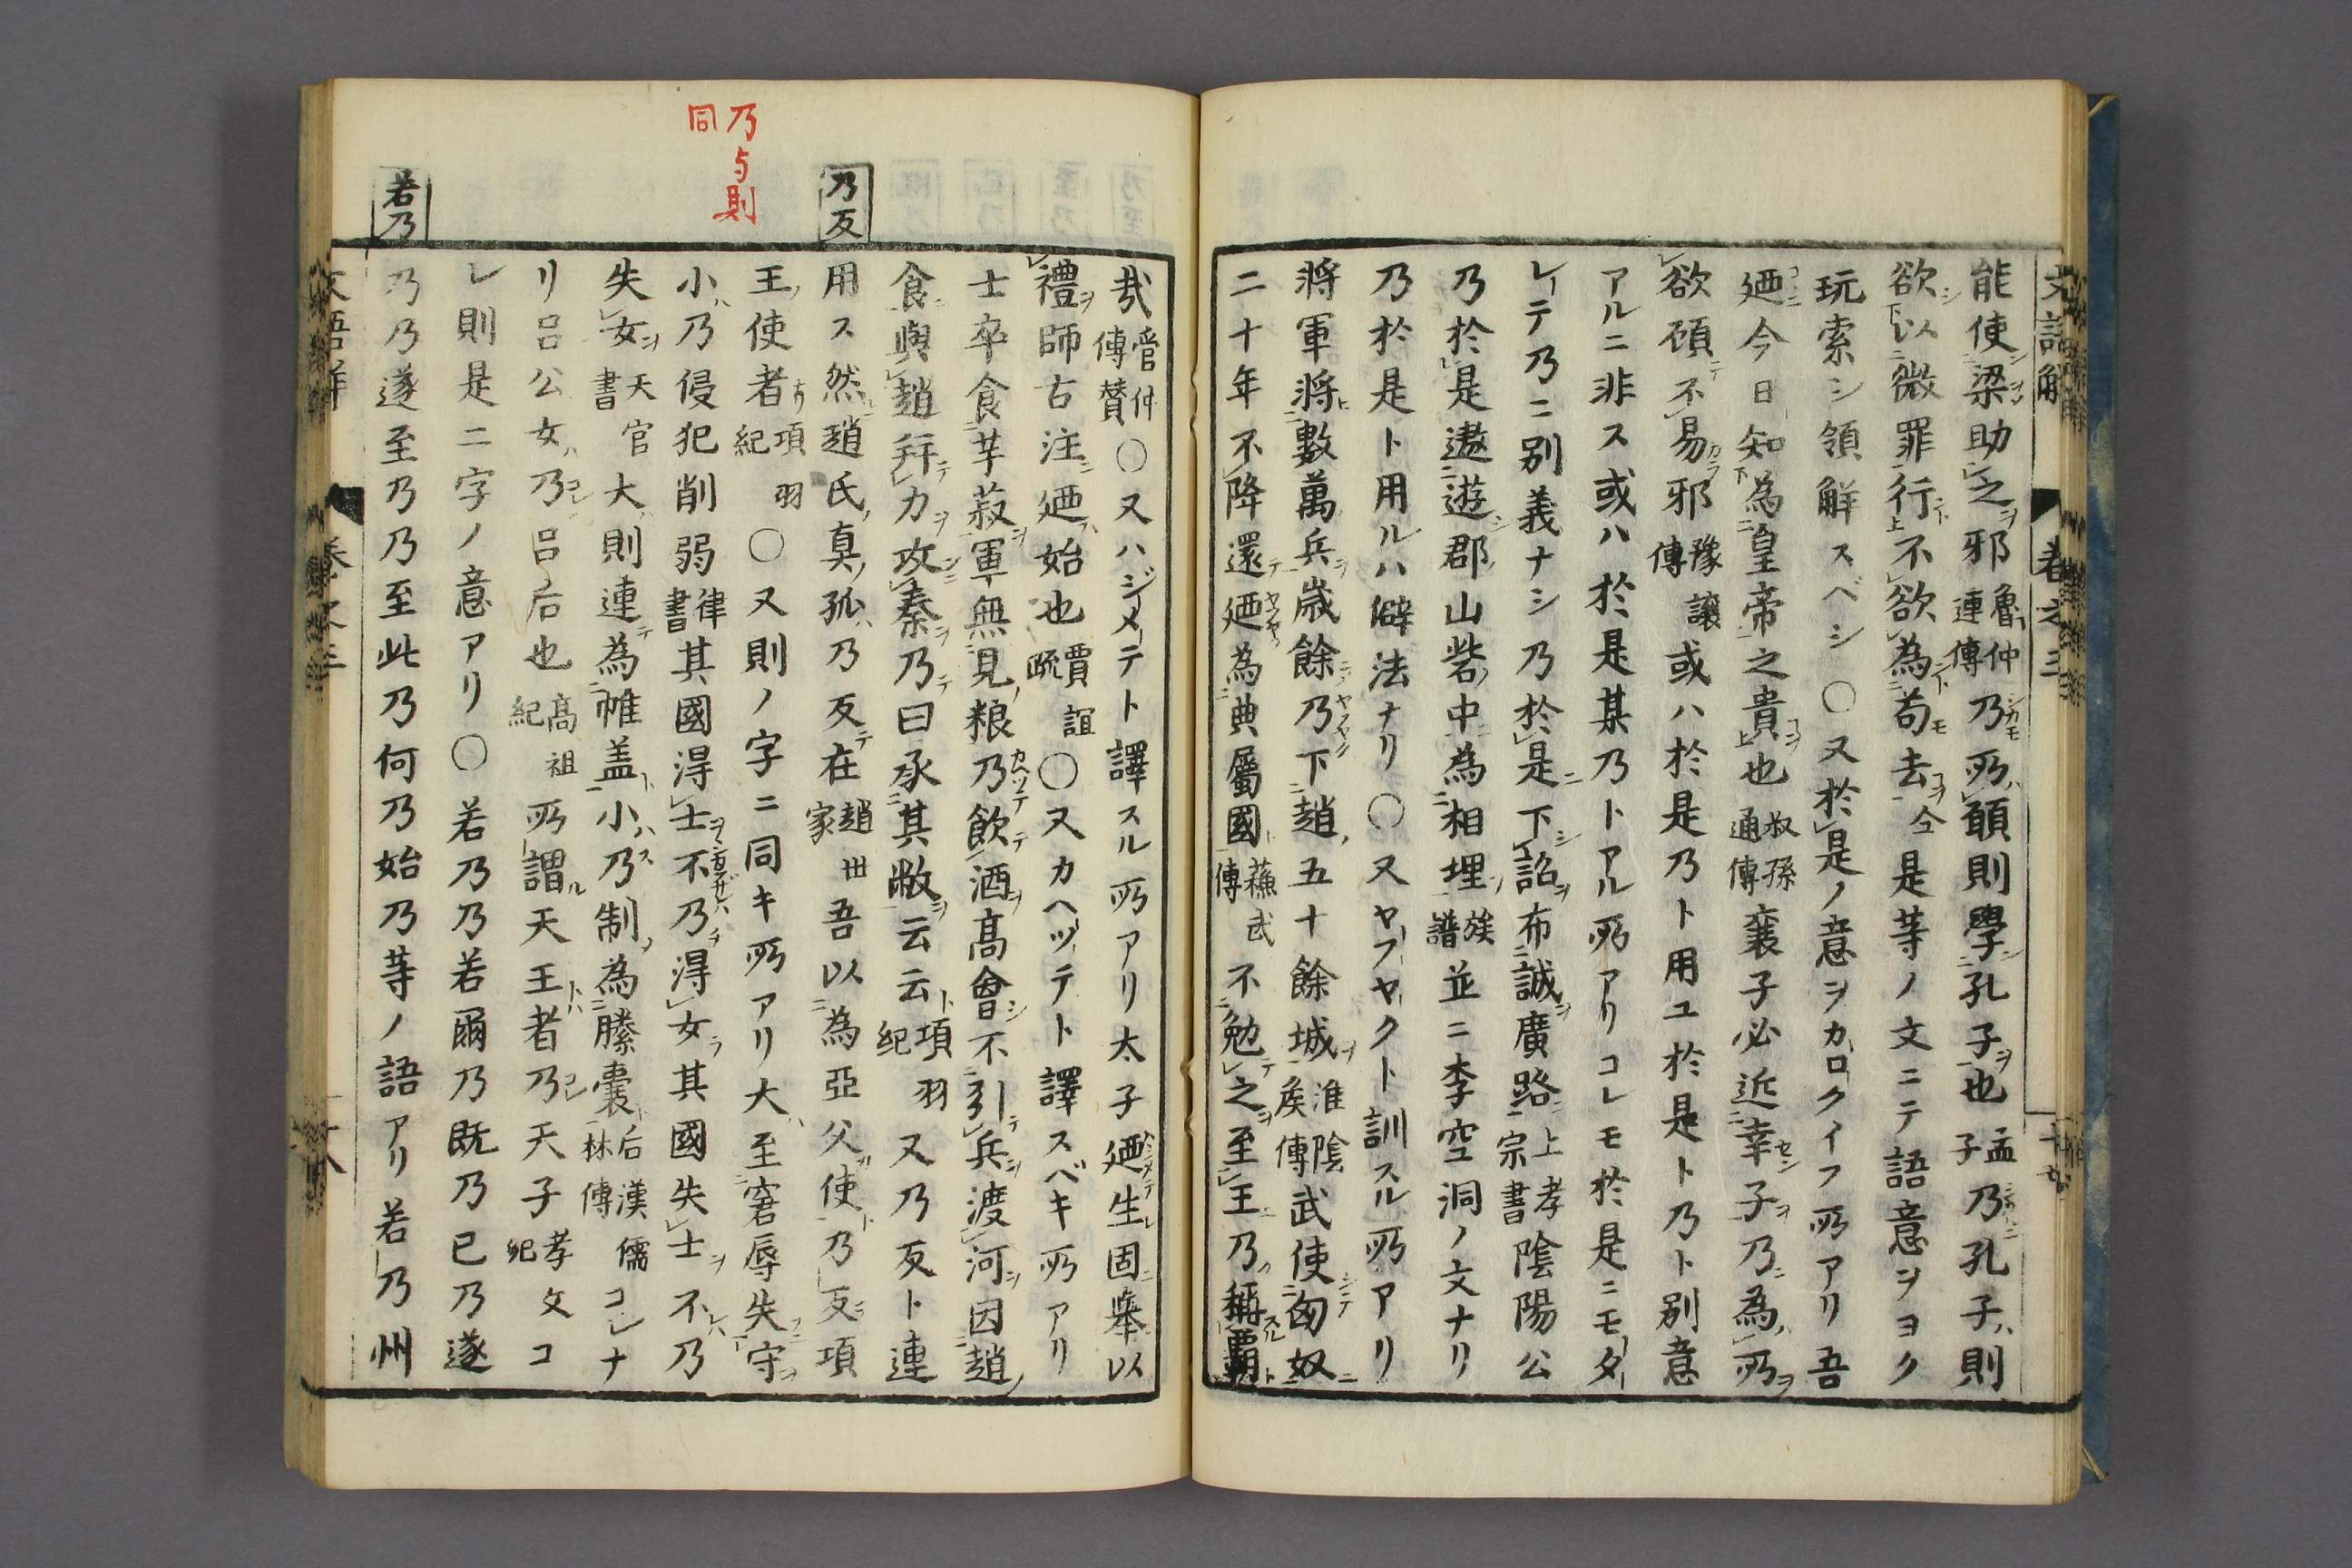 能使梁助之邪魯仲連傳乃所願則學孔子也孟子乃孔子則
欲以微罪行不欲為苟去仝是等ノ文ニテ語意ヲヨク
玩索シ領解スベシ〇又於是ノ意ヲカロクイフ所アリ吾
廼今日知為皇帝之貴也叔孫通傳襄子必近幸子乃為所
欲顧不易邪豫讓傳或ハ於是乃ト用ユ於是ト乃ト別意
アルニ非ス或ハ於是某乃トアル所アリコレモ於是ニモタ
レテ乃ニ別義ナシ乃於是下詔布誠廣路上孝宗書陰陽公
乃於是遨遊郡山砦中為相埋族譜並ニ李空洞ノ文ナリ
乃於是ト用ルハ僻法ナリ〇又ヤフヤクト訓スル所アリ
將軍將數萬兵歲餘乃下趙五十餘城淮陰矦傳武使匈奴
二十年不降還廼為典屬國蘓武傳不勉之至王乃稱覇
哉管仲傳賛〇又ハジメテト譯スル所アリ太子廼生固舉以
禮師古注廼始也賈誼疏〇又カヘツテト譯スベキ所アリ
士卒食芋菽軍無見粮乃飲酒髙會不引兵渡河因趙
食與趙拜力攻秦乃曰承其敝云云項羽紀又乃反ト連
用ス然趙氏真孤乃反在趙世家吾以為亞父使乃反項
王使者項羽紀〇又則ノ字ニ同キ所アリ大至窘辱失守
小乃侵犯削弱律書其國得士不乃得女其國失士不乃
失女天官書大則連為帷盖小乃制為縢囊后漢儒林傳コレナ
リ呂公女乃呂后也髙祖紀所謂天王者乃天子孝文紀コ
レ則是二字ノ意アリ〇若乃乃若爾乃既乃已乃遂
乃乃遂至乃乃至此乃何乃始乃等ノ語アリ若乃州
乃反
若乃
乃与則
同
文語解
卷之三